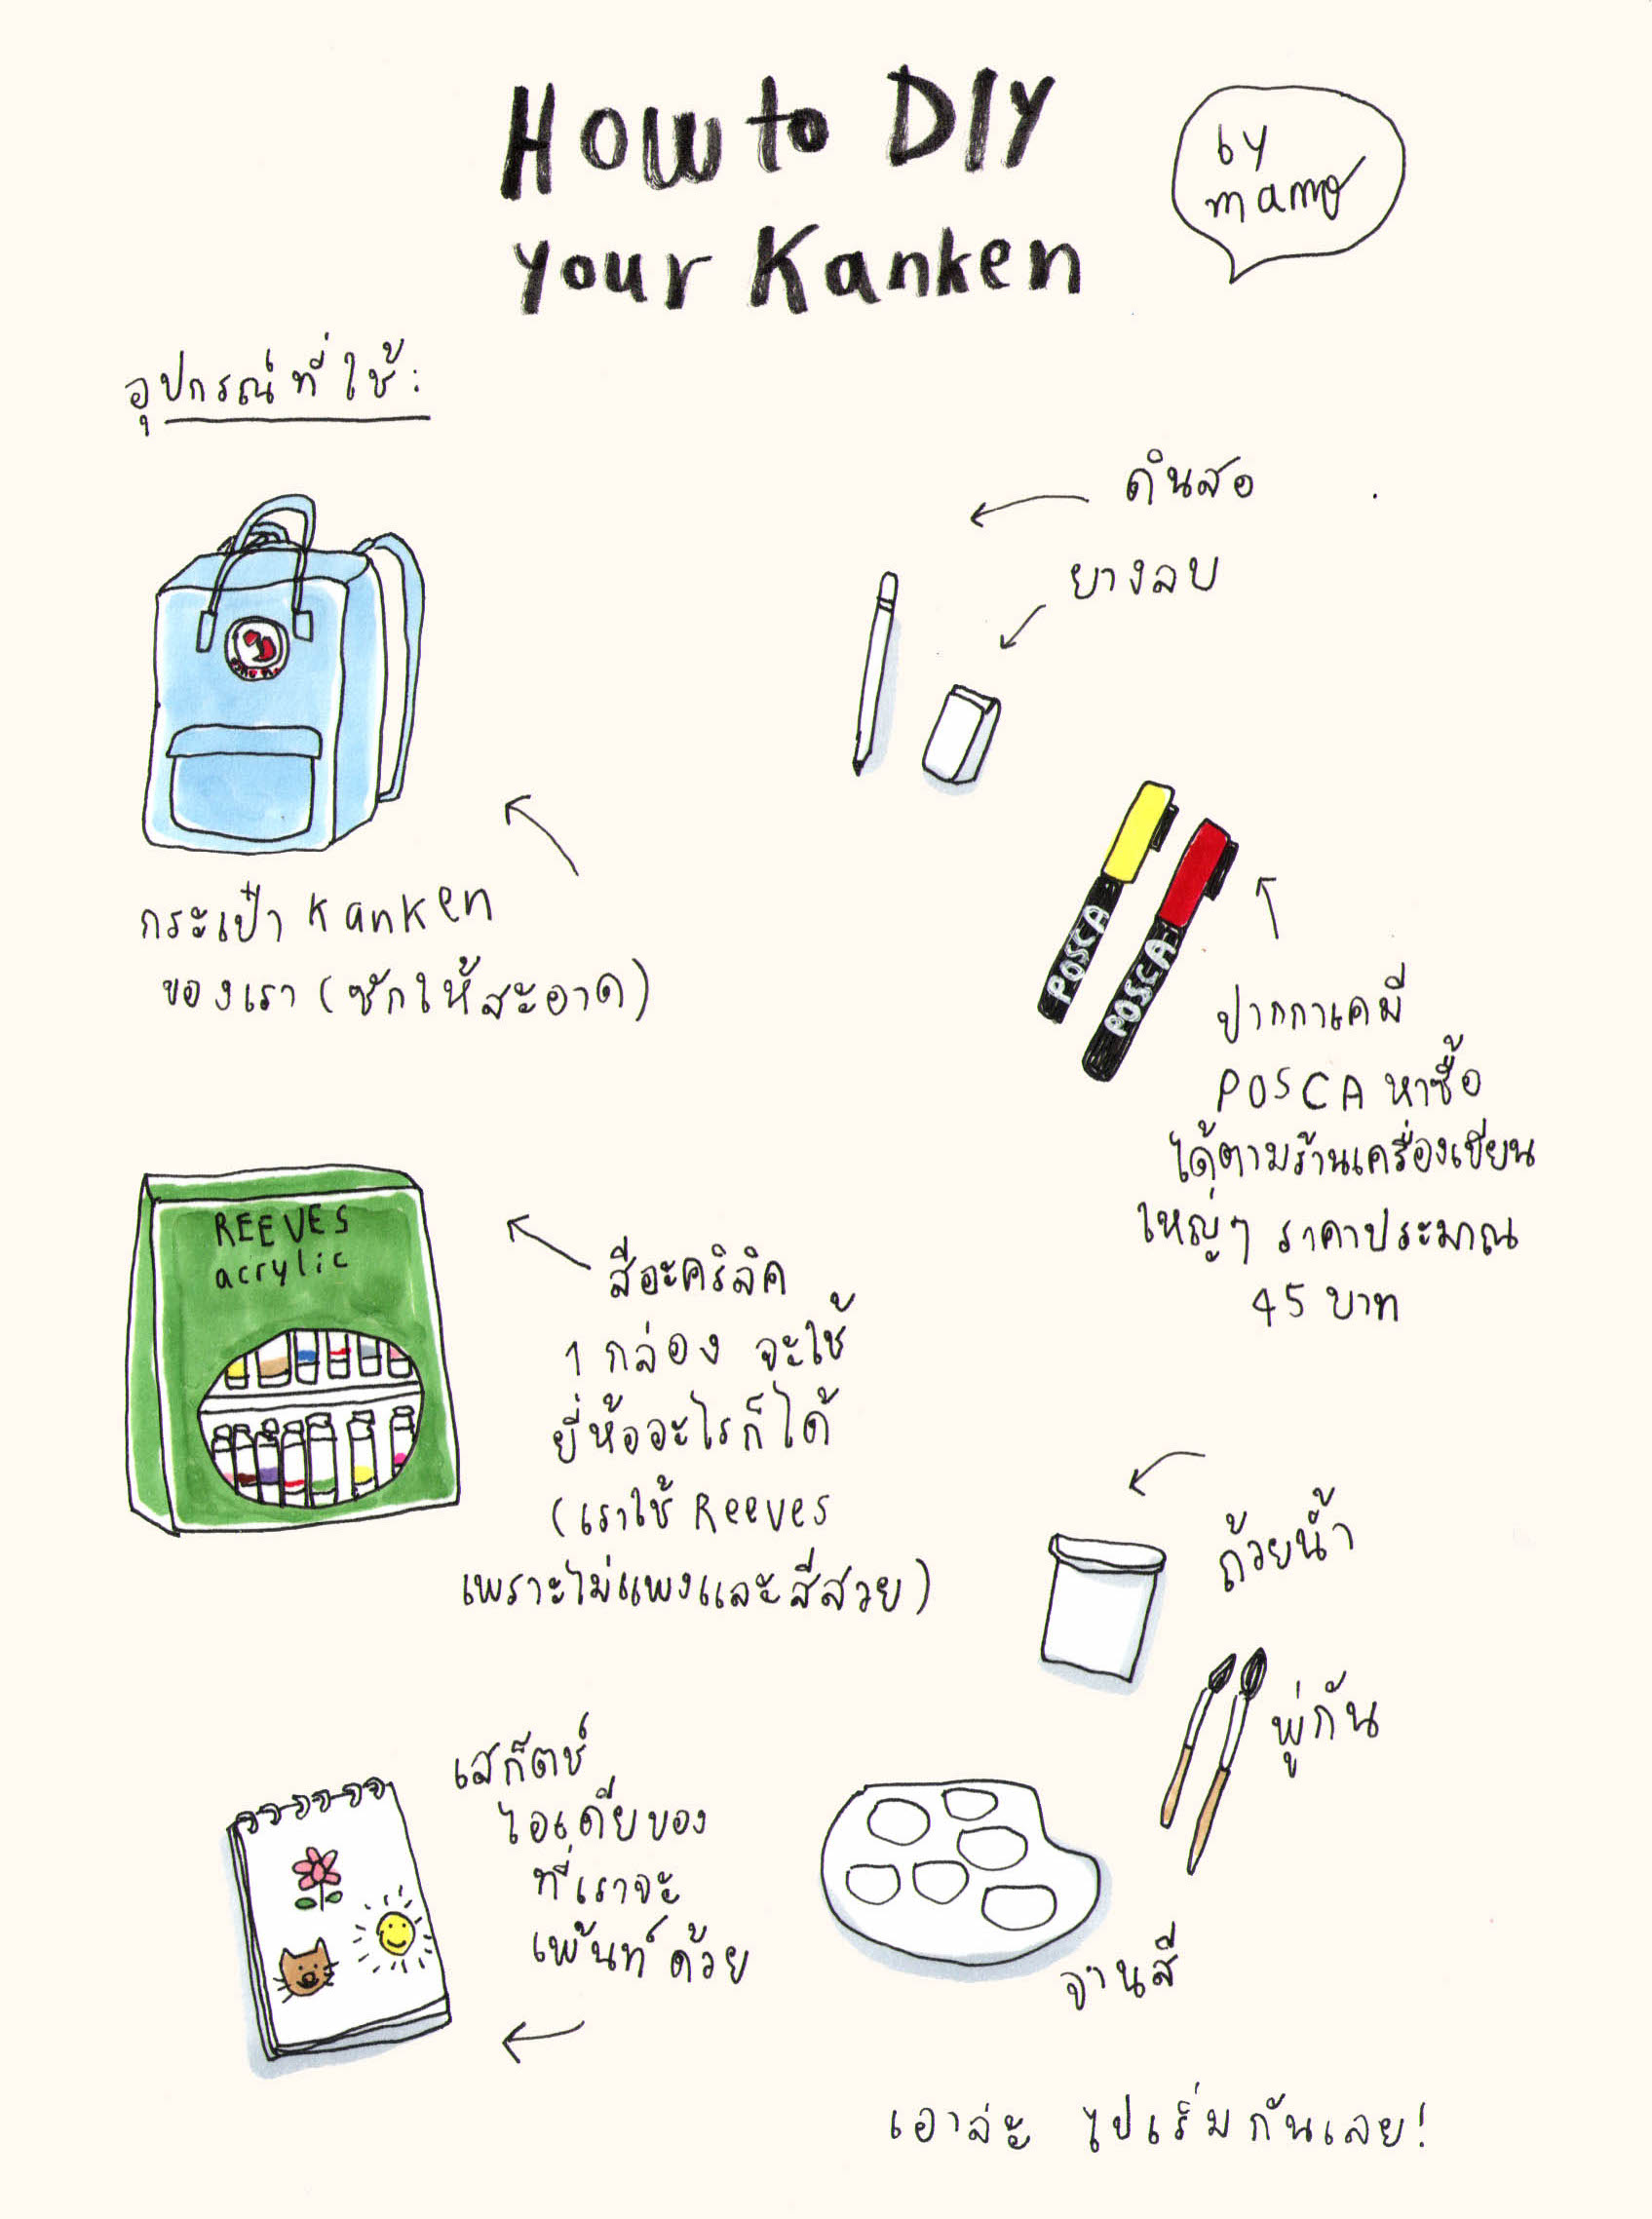 How to DIY
your Kanken
by
mamo
อุปกรณ์ที่ใช้:
ดินสอ
ยางลบ
กระเป๋า Kanken
ของเรา (ซักให้สะอาด)
POSCA
POSCA
ปากกาเคมี
POSCA หาซื้อ
ได้ตามร้านเครื่องเขียน
ใหญ่ๆ ราคาประมาณ
45 บาท
REEVES
acrylic
สีอะคริลิค
1 กล่อง จะใช้
ยี่ห้ออะไรก็ได้
(เราใช้ Reeves
เพราะไม่แพงและสีสวย)
ถ้วยน้ำ
พู่กัน
เสก็ตช์
ไอเดียของ
ที่เราจะ
เพ้นท์ด้วย
จานสี
เอาล่ะ ไปเริ่มกันเลย!